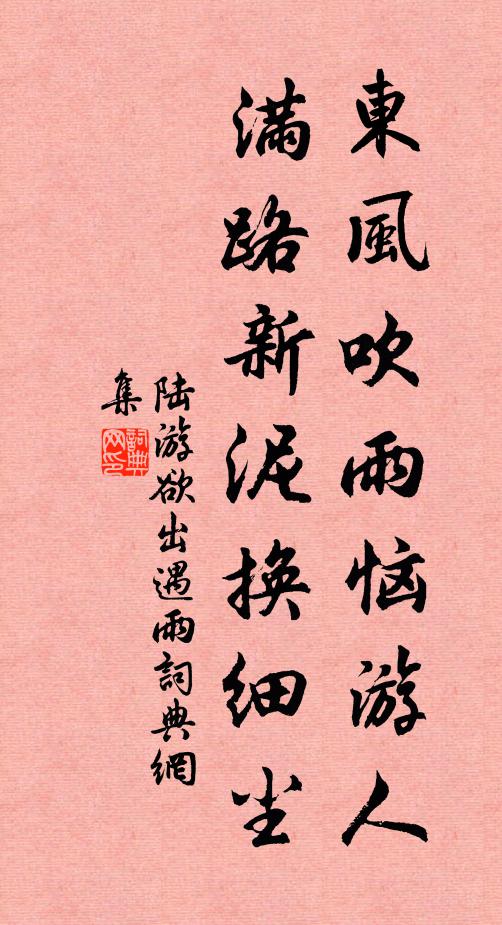 東風吹雨恼游人
滿路新泥換细尘
陆游欲出遇雨詞典網
集
詞典
网印